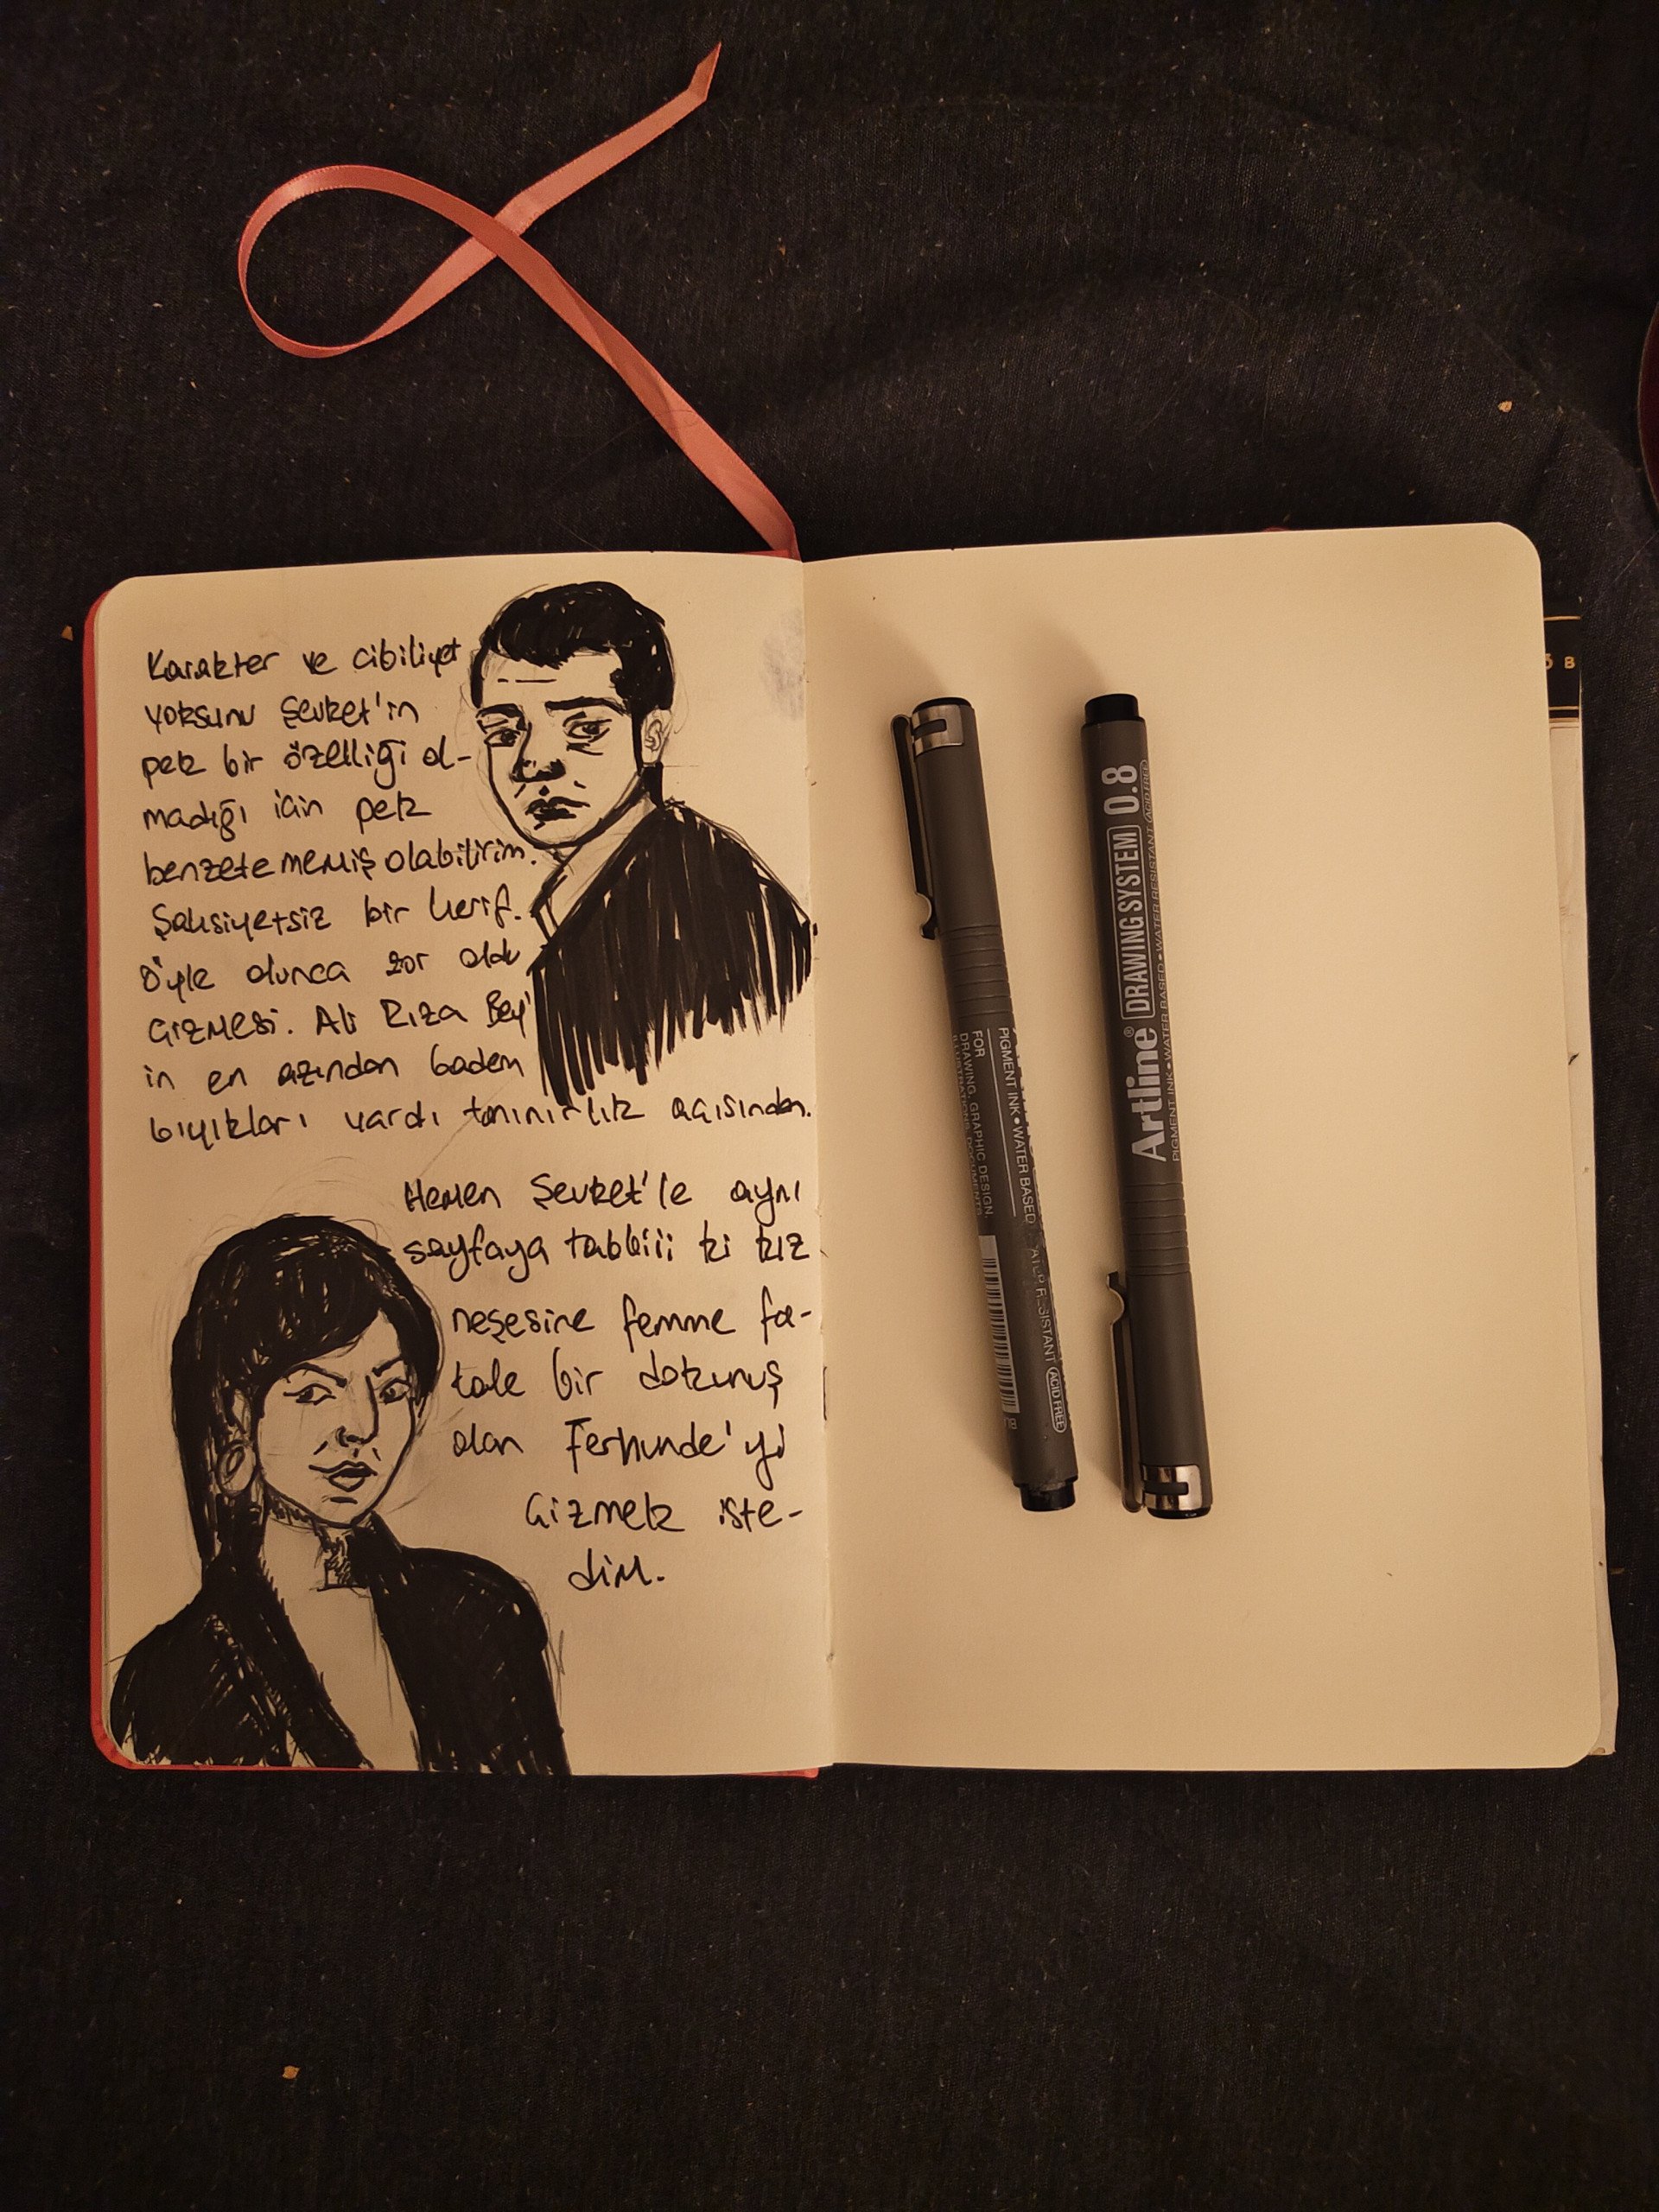 Karakter ve cibiliyet
yoksunu Şevket'in
pek bir özelliği ol-
madığı için pek
benzetememiş olabilirim.
Şahsiyetsiz bir herif.
Öyle olunca zor oldu
çizmesi. Ali Rıza Bey'
in en azından badem
bıyıkları vardı tanınırlık açısından.
Hemen Şevket'le aynı
sayfaya tabbiii ki kız
neşesine femme fa-
tale bir dokunuş
olan Ferhunde'yi
çizmek iste-
dim.
FOR
DRAWING, GRAPHIC DESIGN,
PIGMENT INK • WATER BASED
ACID FREE
Artline® DRAWING SYSTEM 0.8
PIGMENT INK • WATER BASED • WATER RESISTANT ACID FREE